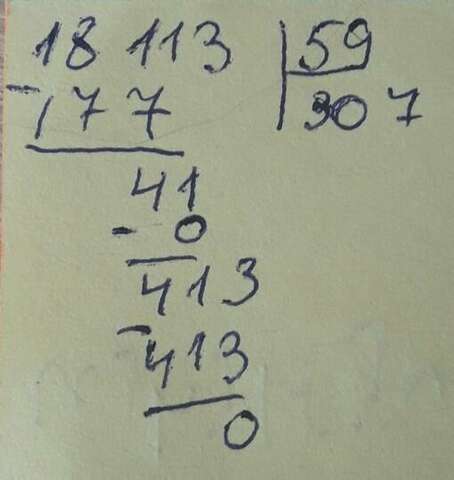 18 113 | 59
- 177 | 307
41
- 0
413
- 413
0